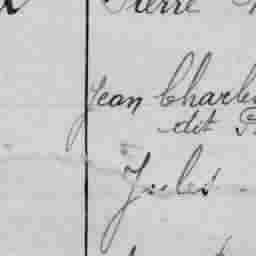 Pierre
Jean Charles
dit
Jules